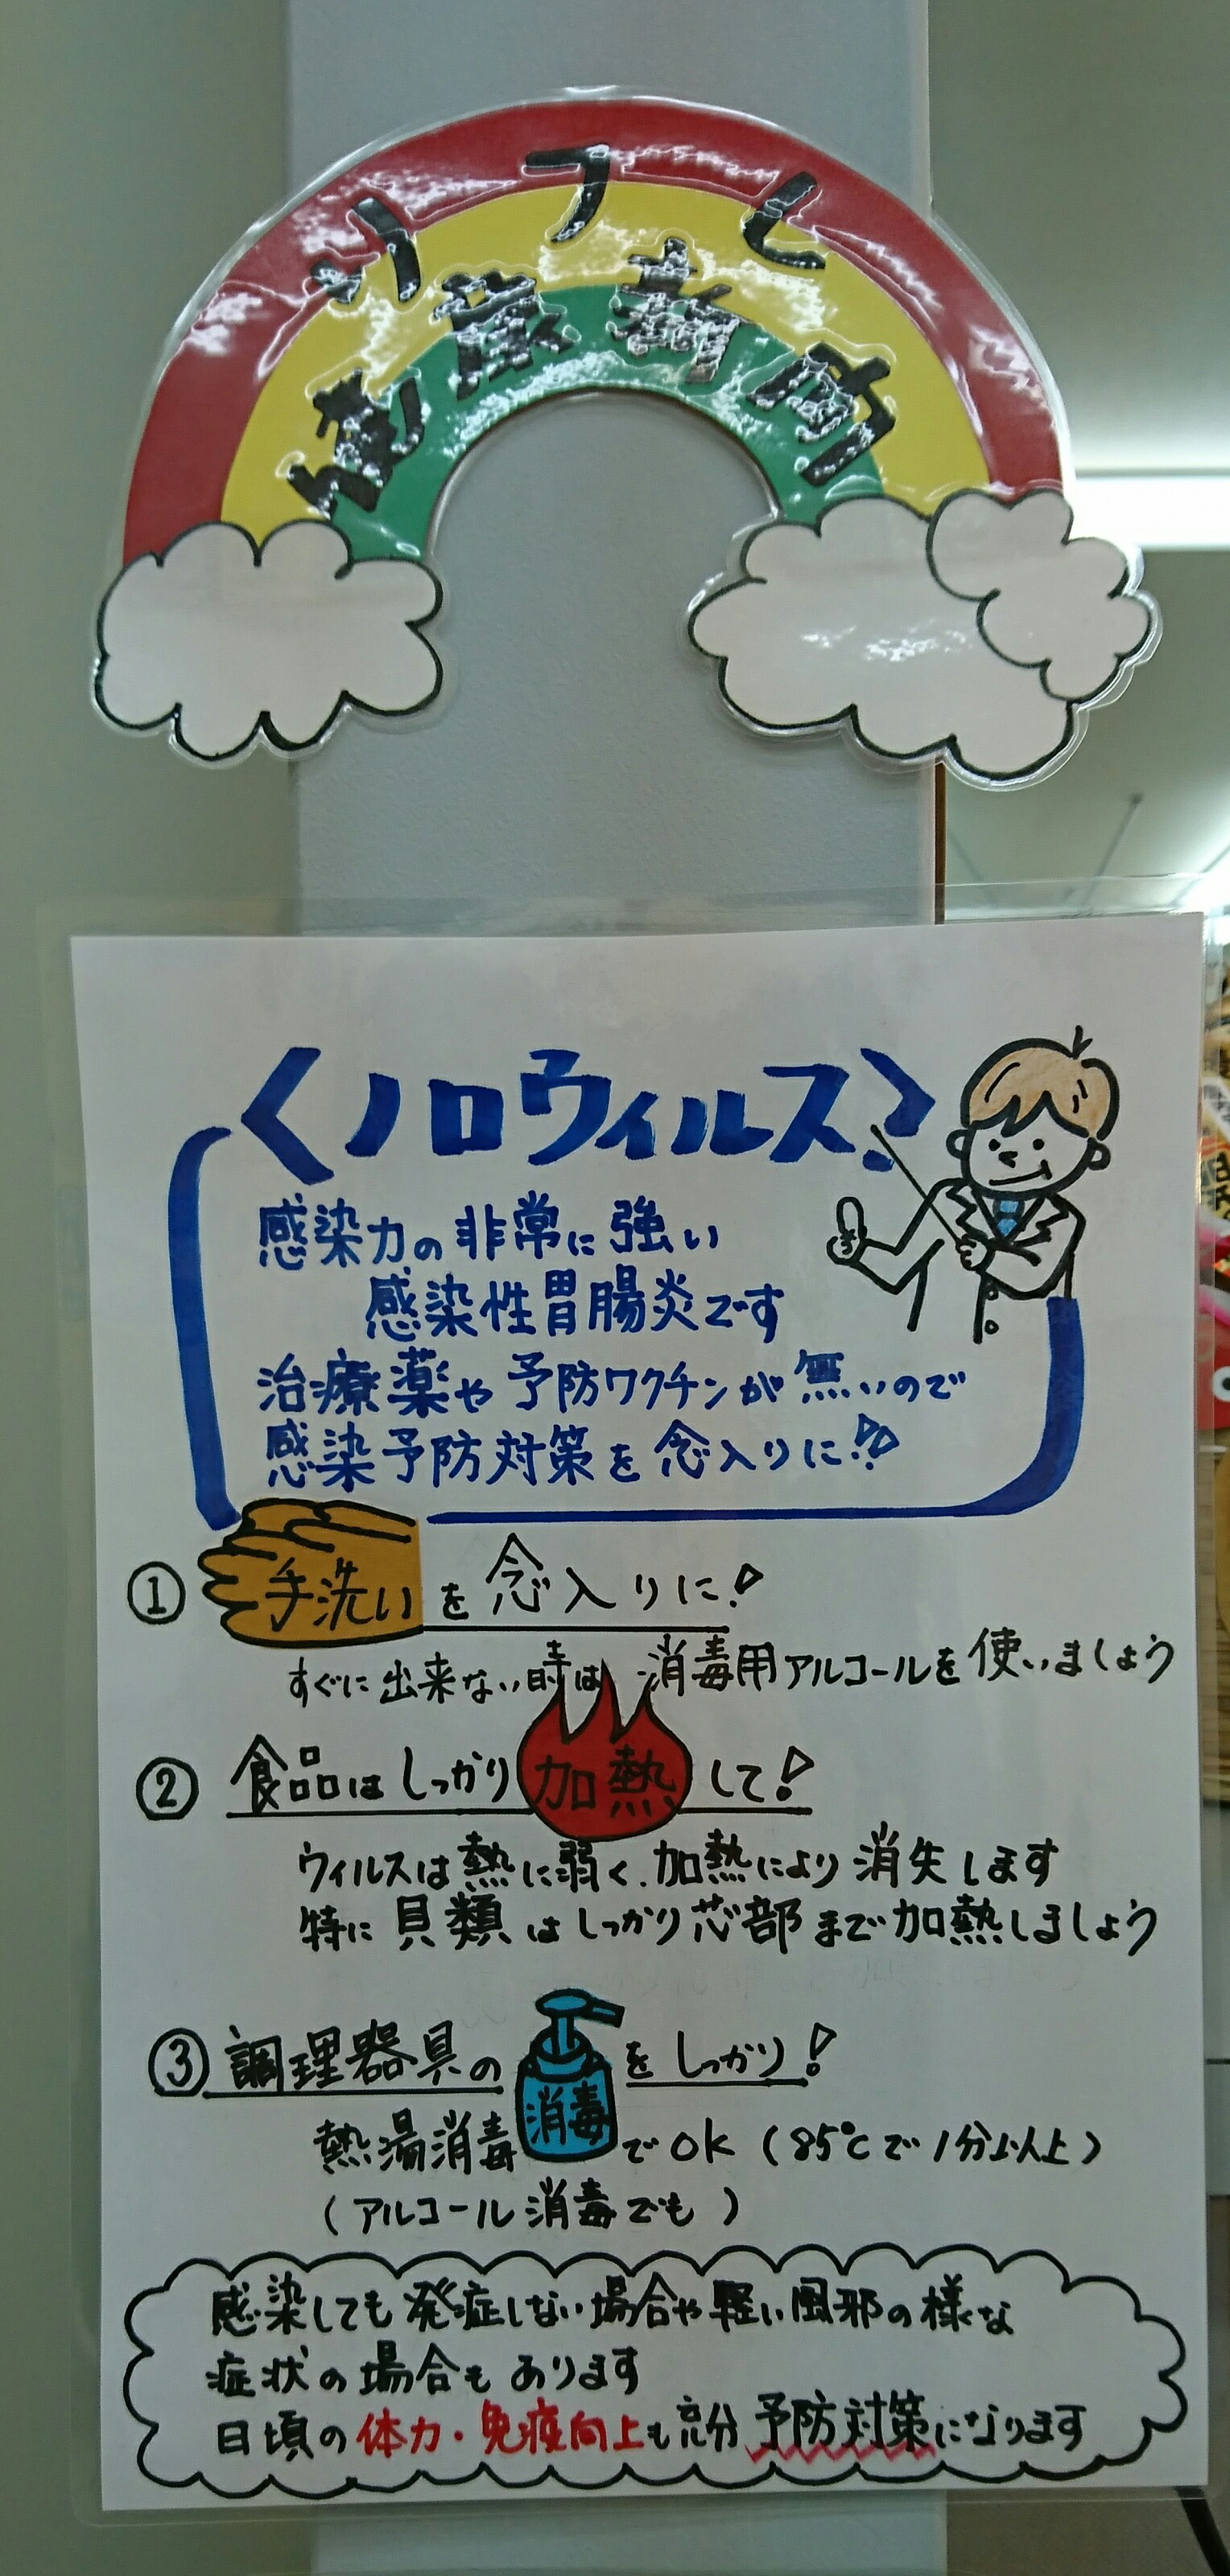 リフレ
健康新聞
〈ノロウィルス〉
感染力の非常に強い
感染性胃腸炎です
治療薬や予防ワクチンが無いので
感染予防対策を念入りに!!
① 手洗いを念入りに!
すぐに出来ない時は 消毒用アルコールを使いましょう
② 食品はしっかり加熱して!
ウィルスは熱に弱く、加熱により消失します
特に貝類はしっかり芯部まで加熱しましょう
③ 調理器具の消毒をしっかり!
熱湯消毒でOK(85℃で1分以上)
(アルコール消毒でも)
感染しても発症しない場合や軽い風邪の様な
症状の場合もあります
日頃の体力・免疫向上も充分予防対策になります